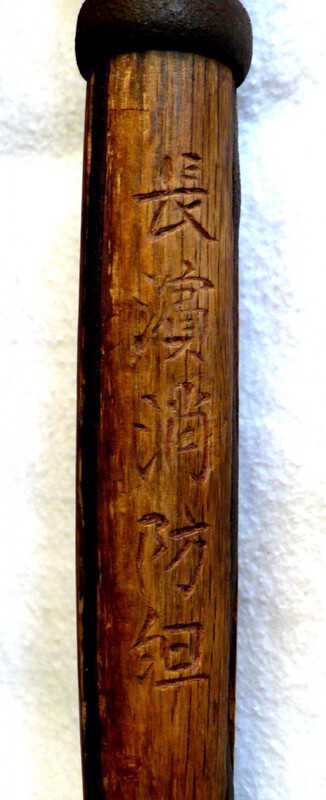 長濵消防組